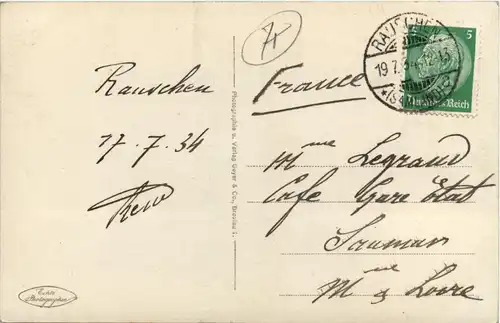 Rauschen
17.7.34
France
Mme Legrand
Cafe Gare Etat
Saumur
Me & Loire
Photographie u. Verlag Geyer & Co., Breslau I.
RAUSCHEN
19.7.34
5
Deutsches Reich
Echte
Photographie